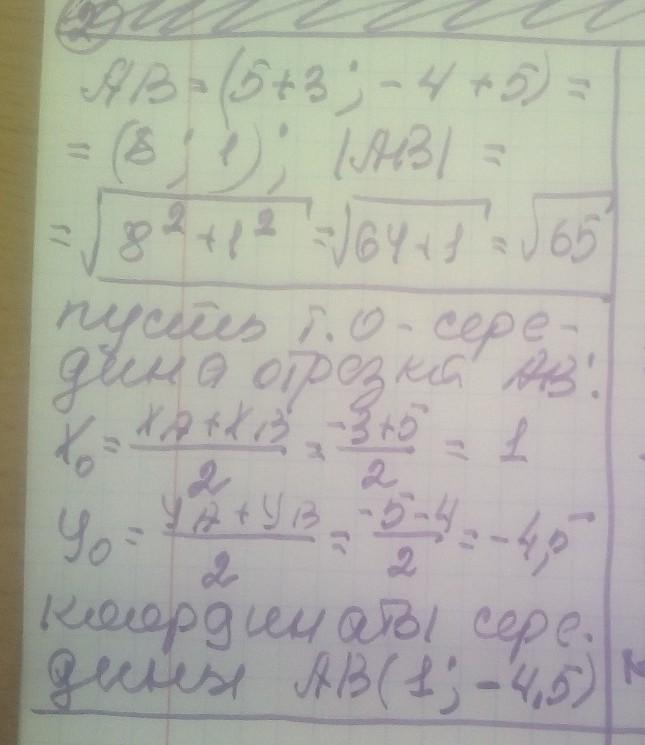 2
AB = (5+3; -4+5) =
= (8; 1); |AB| =
= √(8² + 1²) = √(64+1) = √65
пусть т. О - сере-
дина отрезка АВ:
x₀ = (xA + xB)/2 = (-3+5)/2 = 1
y₀ = (yA + yB)/2 = (-5-4)/2 = -4,5
координаты сере-
дины AB(1; -4,5)